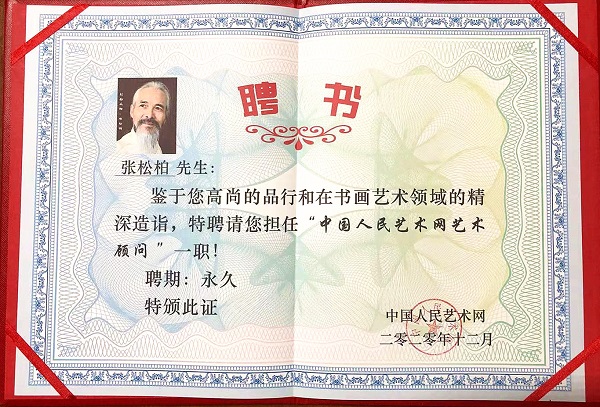 聘书
张松柏 先生：
鉴于您高尚的品行和在书画艺术领域的精
深造诣，特聘请您担任“中国人民艺术网艺术
顾问”一职！
聘期：永久
特颁此证
中国人民艺术网
二零二零年十二月